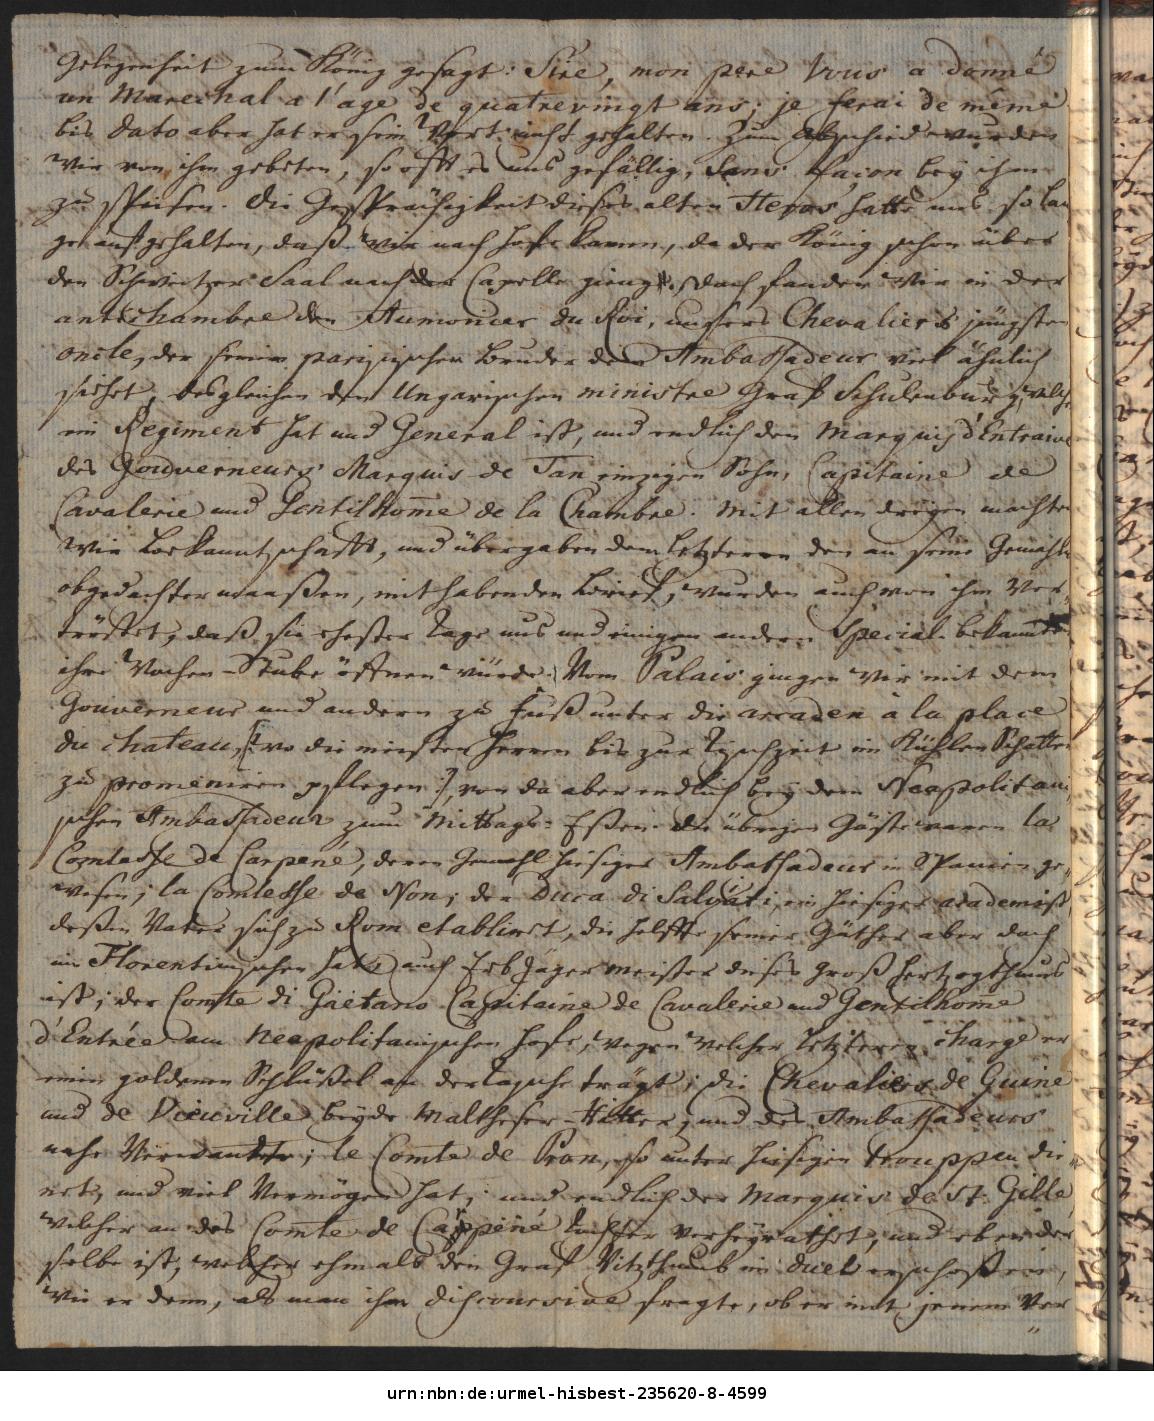 Gelegenheit zum König gesagt: Sire, mon pere Vous a donné
un Marechal a l'age de quatrevingt ans; je ferai de même
bis dato aber hat er sein Wort nicht gehalten. Zum Abschied wurden
wir von ihm gebeten, so offt es uns gefällig, sans façon bey ihm
zu speisen. Die Gesprächigkeit dieses alten Heros hatte uns so lan
ge aufgehalten, daß wir nach Hofe kamen, da der König schon über
den Schweitzer Saal nach der Capelle gieng, doch fanden wir in der
antichambre den Aumonier du Roi, unsers Chevaliers jüngsten
oncle, der seinem parisischen Bruder dem Ambassadeur viel ähnlich
siehet, desgleichen den Ungarischen ministre Graf Schulenburg, welcher
ein Regiment hat und General ist, und endlich den Marquis d'Entraive
des Gouverneurs Marquis de Tan einzigen Sohn, Capitaine de
Cavalerie und Gentilhom̄e de la Chambre. Mit allen dreyen machten
wir Bekanntschafft, und übergaben dem letzteren den an seine Gemahlin
obgedachtermaaßen, mithabenden Brief, wurden auch von ihm ver-
tröstet, daß sie ehester Tage uns und einigen andern Special-bekannten
ihre Wochen-Stube öffnen würde. Vom Palais gingen wir mit dem
Gouverneur und andern zu Fuß unter die arcaden à la place
du chateau, [: wo die meisten Herren bis zur Tischzeit im Kühlen Schatten
zu promeniren pflegen :], von da aber endlich bey dem Neapolitani
schen Ambassadeur zum Mittags-Eßen. Die übrigen Gäste waren la
Comtesse de Carpené, deren Gemahl hiesiger Ambassadeur in Spanien ge-
wesen; la Comtesse de Non; der Duca di Salviati, ein hiesiger academist,
deßen Vater sich zu Rom etablirt, die Helffte seiner Güther aber doch
im Florentinischen hat, auch Erb Jägermeister dieses Groß Hertzogthums
ist; der Comte di Gaëtano Capitaine de Cavalerie und Gentilhom̄e
d'Entrée am Neapolitanischen Hofe, wegen welcher letzteren charge er
einen goldenen Schlüßel an der Tasche trägt; die Chevaliers de Guine
und de Vieuville beyde Maltheser-Ritter, und des Ambassadeurs
nahe Verwandte; le Comte de Pran, so unter hiesigen trouppen die
net, und viel Vermögen hat; und endlich der Marquis de St. Gille,
welcher an des Comte de Carpené Tochter verheyrathet, und eben der
selbe ist, welcher ehmals den Graf Vitzthumb im duel erschoßen,
wie er denn, als man ihn discoursive fragte, ob er mit jenem Ver